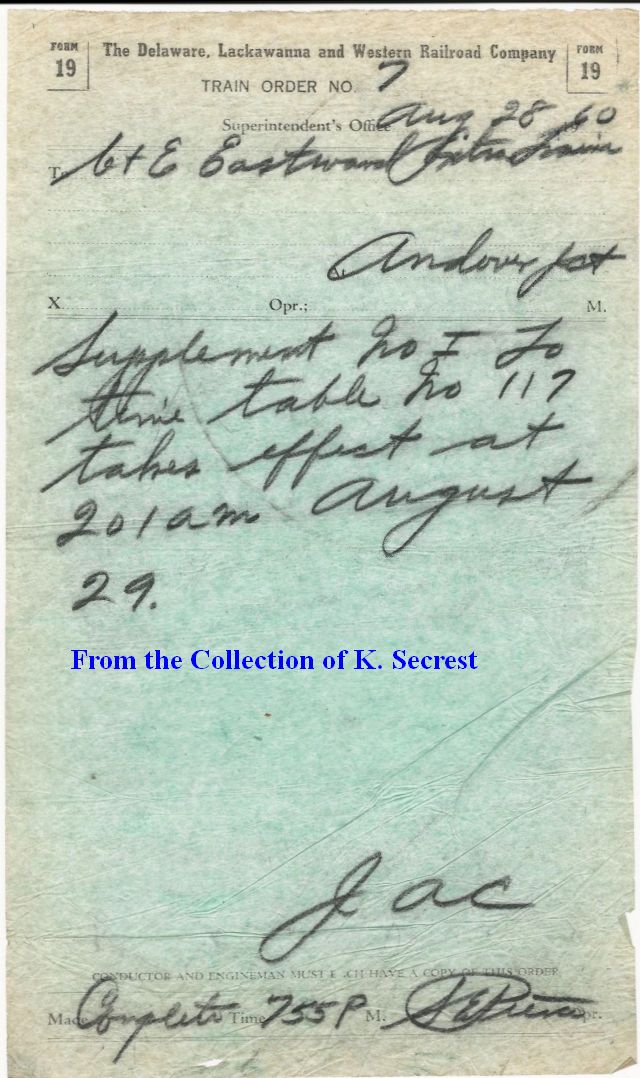 FORM 19 The Delaware, Lackawanna and Western Railroad Company FORM 19
TRAIN ORDER NO. 7
Superintendent's Office Aug 28 60
To C+E Eastward Extra Trains
At Andover Jct
X Opr.; M.
Supplement No I To
time table No 117
takes effect at
201am August
29.
From the Collection of K. Secrest
J a C
CONDUCTOR AND ENGINEMAN MUST EACH HAVE A COPY OF THIS ORDER
Made Complete Time 755P M. Opr.